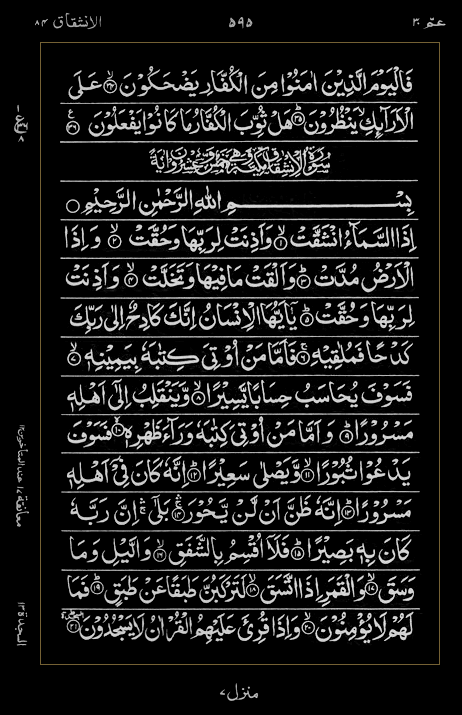 عمّ ۳۰
۵۹۵
الانشقاق ۸۴
فَالْيَوْمَ الَّذِيْنَ اٰمَنُوْا مِنَ الْكُفَّارِ يَضْحَكُوْنَ ۙ‏﴿۳۴﴾ عَلَى
الْاَرَآئِكِ ۙ يَنْظُرُوْنَ ؕ‏﴿۳۵﴾ هَلْ ثُوِّبَ الْكُفَّارُ مَا كَانُوْا يَفْعَلُوْنَ ﴿۳۶﴾ ع
سُوْرَةُ الْاِنْشِقَاقِ مَكِّيَّةٌ وَّهِيَ خَمْسٌ وَّعِشْرُوْنَ اٰيَةً
بِسْمِ اللّٰهِ الرَّحْمٰنِ الرَّحِيْمِ ○
اِذَا السَّمَآءُ انْشَقَّتْ ۙ‏﴿۱﴾ وَاَذِنَتْ لِرَبِّهَا وَحُقَّتْ ۙ‏﴿۲﴾ وَاِذَا
الْاَرْضُ مُدَّتْ ؕ‏﴿۳﴾ وَاَلْقَتْ مَا فِيْهَا وَتَخَلَّتْ ۙ‏﴿۴﴾ وَاَذِنَتْ
لِرَبِّهَا وَحُقَّتْ ؕ‏﴿۵﴾ يٰۤاَيُّهَا الْاِنْسَانُ اِنَّكَ كَادِحٌ اِلٰى رَبِّكَ
كَدْحًا فَمُلٰقِيْهِ ۚ‏﴿۶﴾ فَاَمَّا مَنْ اُوْتِىَ كِتٰبَهٗ بِيَمِيْنِهٖ ۙ‏﴿۷﴾
فَسَوْفَ يُحَاسَبُ حِسَابًا يَّسِيْرًا ۙ‏﴿۸﴾ وَّيَنْقَلِبُ اِلٰٓى اَهْلِهٖ
مَسْرُوْرًا ؕ‏﴿۹﴾ وَاَمَّا مَنْ اُوْتِىَ كِتٰبَهٗ وَرَآءَ ظَهْرِهٖ ۙ‏﴿۱۰﴾ فَسَوْفَ
يَدْعُوْا ثُبُوْرًا ۙ‏﴿۱۱﴾ وَّيَصْلٰى سَعِيْرًا ؕ‏﴿۱۲﴾ اِنَّهٗ كَانَ فِىْۤ اَهْلِهٖ
مَسْرُوْرًا ؕ‏﴿۱۳﴾ اِنَّهٗ ظَنَّ اَنْ لَّنْ يَّحُوْرَ ۛۚ‏﴿۱۴﴾ بَلٰٓى ۛۚ اِنَّ رَبَّهٗ
كَانَ بِهٖ بَصِيْرًا ؕ‏﴿۱۵﴾ فَلَاۤ اُقْسِمُ بِالشَّفَقِ ۙ‏﴿۱۶﴾ وَالَّيْلِ وَمَا
وَسَقَ ۙ‏﴿۱۷﴾ وَالْقَمَرِ اِذَا اتَّسَقَ ۙ‏﴿۱۸﴾ لَتَرْكَبُنَّ طَبَقًا عَنْ طَبَقٍ ؕ‏﴿۱۹﴾ فَمَا
لَهُمْ لَا يُؤْمِنُوْنَ ۙ‏﴿۲۰﴾ وَاِذَا قُرِئَ عَلَيْهِمُ الْقُرْاٰنُ لَا يَسْجُدُوْنَ ﴿۲۱﴾
معانقة ۱۷ عند المتأخرين ۱۲
السجدة ۱۳
منزل ۷